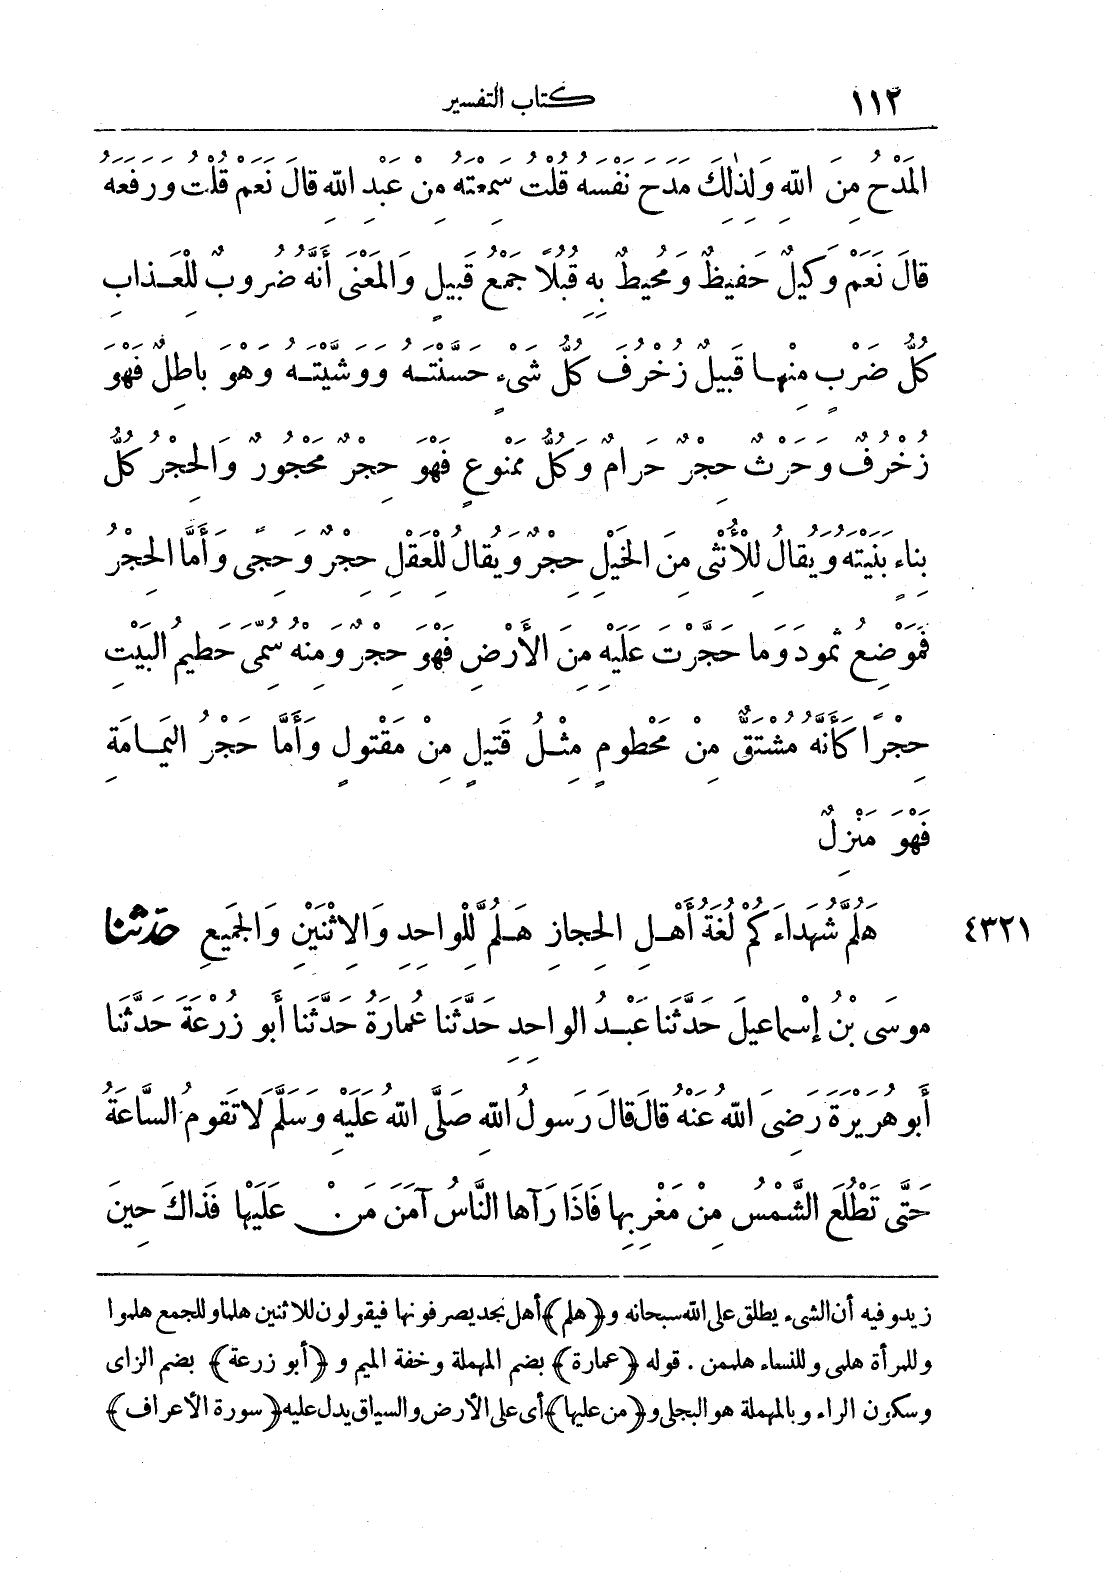 ١١٢ كتاب التفسير
المَدْحُ مِنَ اللّٰهِ وَلِذٰلِكَ مَدَحَ نَفْسَهُ قُلْتُ سَمِعْتَهُ مِنْ عَبْدِ اللّٰهِ قَالَ نَعَمْ قُلْتُ وَرَفَعَهُ
قالَ نَعَمْ وَكِيلٌ حَفِيظٌ وَمُحِيطٌ بِهِ قُبُلًا جَمْعُ قَبِيلٍ وَالمَعْنَى أَنَّهُ ضُرُوبٌ لِلْعَذابِ
كُلُّ ضَرْبٍ مِنْهَا قَبِيلٌ زُخْرُفَ كُلُّ شَىْءٍ حَسَّنْتَهُ وَوَشَّيْتَهُ وَهْوَ باطِلٌ فَهْوَ
زُخْرُفٌ وَحَرْثٌ حِجْرٌ حَرامٌ وَكُلُّ مَمْنُوعٍ فَهْوَ حِجْرٌ مَحْجُورٌ وَالحِجْرُ كُلُّ
بِناءٍ بَنَيْتَهُ وَيُقالُ لِلْأُنْثَى مِنَ الخَيْلِ حِجْرٌ وَيُقالُ لِلْعَقْلِ حِجْرٌ وَحِجًى وَأَمَّا الحِجْرُ
فَمَوْضِعُ ثَمُودَ وَمَا حَجَّرْتَ عَلَيْهِ مِنَ الأَرْضِ فَهْوَ حِجْرٌ وَمِنْهُ سُمِّىَ حَطِيمُ البَيْتِ
حِجْرًا كَأَنَّهُ مُشْتَقٌّ مِنْ مَحْطُومٍ مِثْلُ قَتِيلٍ مِنْ مَقْتُولٍ وَأَمَّا حَجْرُ اليَمامَةِ
فَهْوَ مَنْزِلٌ
٤٣٢١ هَلُمَّ شُهَداءَكُمْ لُغَةُ أَهْلِ الحِجازِ هَلُمَّ لِلْواحِدِ وَالِاثْنَيْنِ وَالجَمِيعِ حَدَّثَنا
مُوسَى بْنُ إِسْماعِيلَ حَدَّثَنا عَبْدُ الواحِدِ حَدَّثَنا عُمارَةُ حَدَّثَنا أَبو زُرْعَةَ حَدَّثَنا
أَبو هُرَيْرَةَ رَضِىَ اللّٰهُ عَنْهُ قالَ قالَ رَسولُ اللّٰهِ صَلَّى اللّٰهُ عَلَيْهِ وَسَلَّمَ لَا تَقومُ السَّاعَةُ
حَتَّى تَطْلُعَ الشَّمْسُ مِنْ مَغْرِبِها فَاذَا رَآها النَّاسُ آمَنَ مَنْ عَلَيْها فَذَاكَ حِينَ
زيدو فيه أن الشىء يطلق على الله سبحانه و ﴿هلم﴾ أهل نجد يصرفونها فيقولون للاثنين هلما وللجمع هلموا
وللمرأة هلمى وللنساء هلممن . قوله ﴿عمارة﴾ بضم المهملة وخفة الميم و ﴿أبو زرعة﴾ بضم الزاى
وسكون الراء وبالمهملة هو البجلى و ﴿من عليها﴾ أى على الأرض والسياق يدل عليه ﴿سورة الأعراف﴾